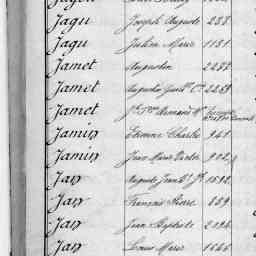 Jagu Joseph Auguste 288.
Jagu Julien Marie 1181.
Jamet Augustin 2288
Jamet Augustin 2289
Jamet Armand
Jamin Etienne Charles 941
Jamin Jean Marie 902
Jan Auguste Jean 1892
Jan François Pierre 859
Jan Jean Baptiste 2194
Jan Louis Marie 1646